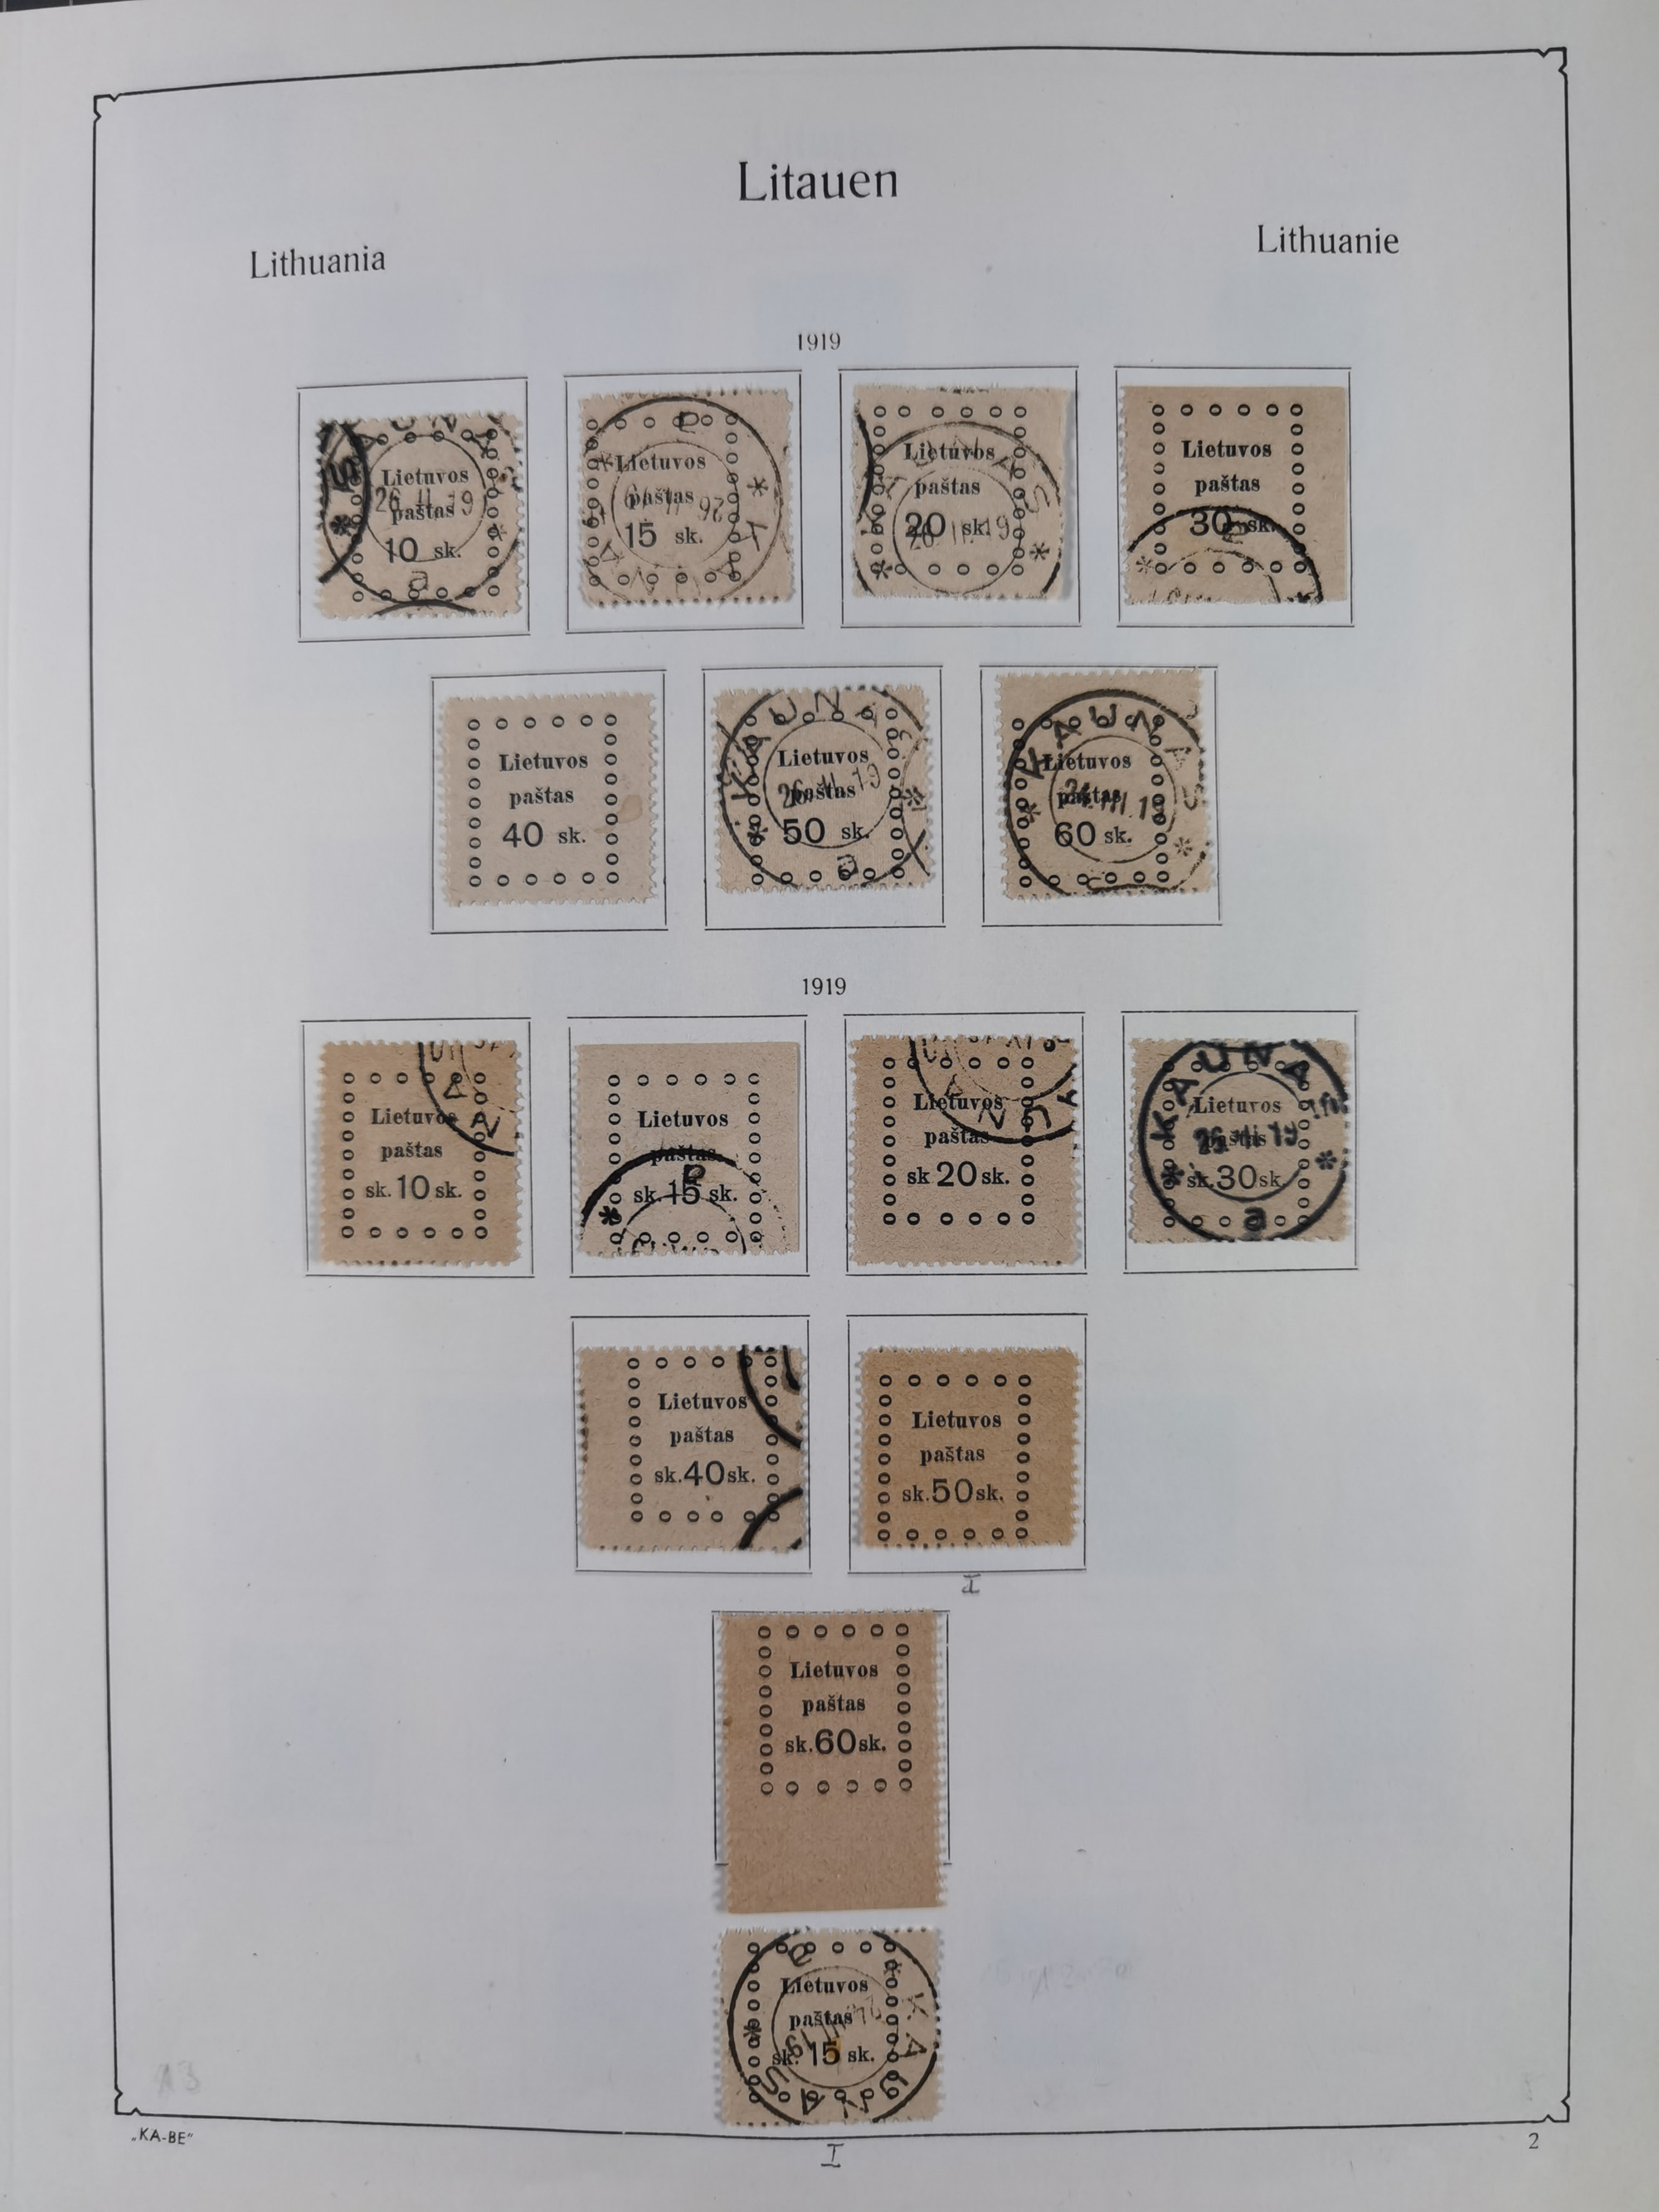 Litauen
Lithuania
Lithuanie
1919
Lietuvos
paštas
10 sk.
26. II. 19
a
Lietuvos
paštas
15 sk.
Lietuvos
paštas
20 sk.
Lietuvos
paštas
30 sk.
Lietuvos
paštas
40 sk.
KAUNAS
Lietuvos
26. II. 19
paštas
50 sk.
a
KAUNAS
Lietuvos
paštas
60 sk.
1919
Lietuvos
paštas
sk. 10 sk.
Lietuvos
paštas
sk. 15 sk.
Lietuvos
paštas
sk 20 sk.
KAUNAS
Lietuvos
paštas
sk. 30 sk.
a
Lietuvos
paštas
sk. 40 sk.
Lietuvos
paštas
sk. 50 sk.
I
Lietuvos
paštas
sk. 60 sk.
Lietuvos
paštas
sk. 15 sk.
KAUNAS
„KA-BE"
I
2